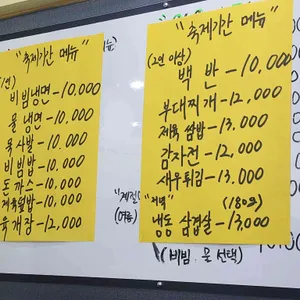 "축제기간 메뉴"
비빔냉면-10,000
물 냉면-10,000
묵사발-10,000
비빔밥-10,000
돈까스-10,000
제육덮밥-10,000
육개장-12,000
"축제기간 메뉴"
(2인 이상)
백 반-10,000
부대찌개-12,000
제육 쌈밥-13,000
감자전-12,000
새우튀김-13,000
(180g)
냉동 삼겹살-13,000
(비빔, 물 선택)